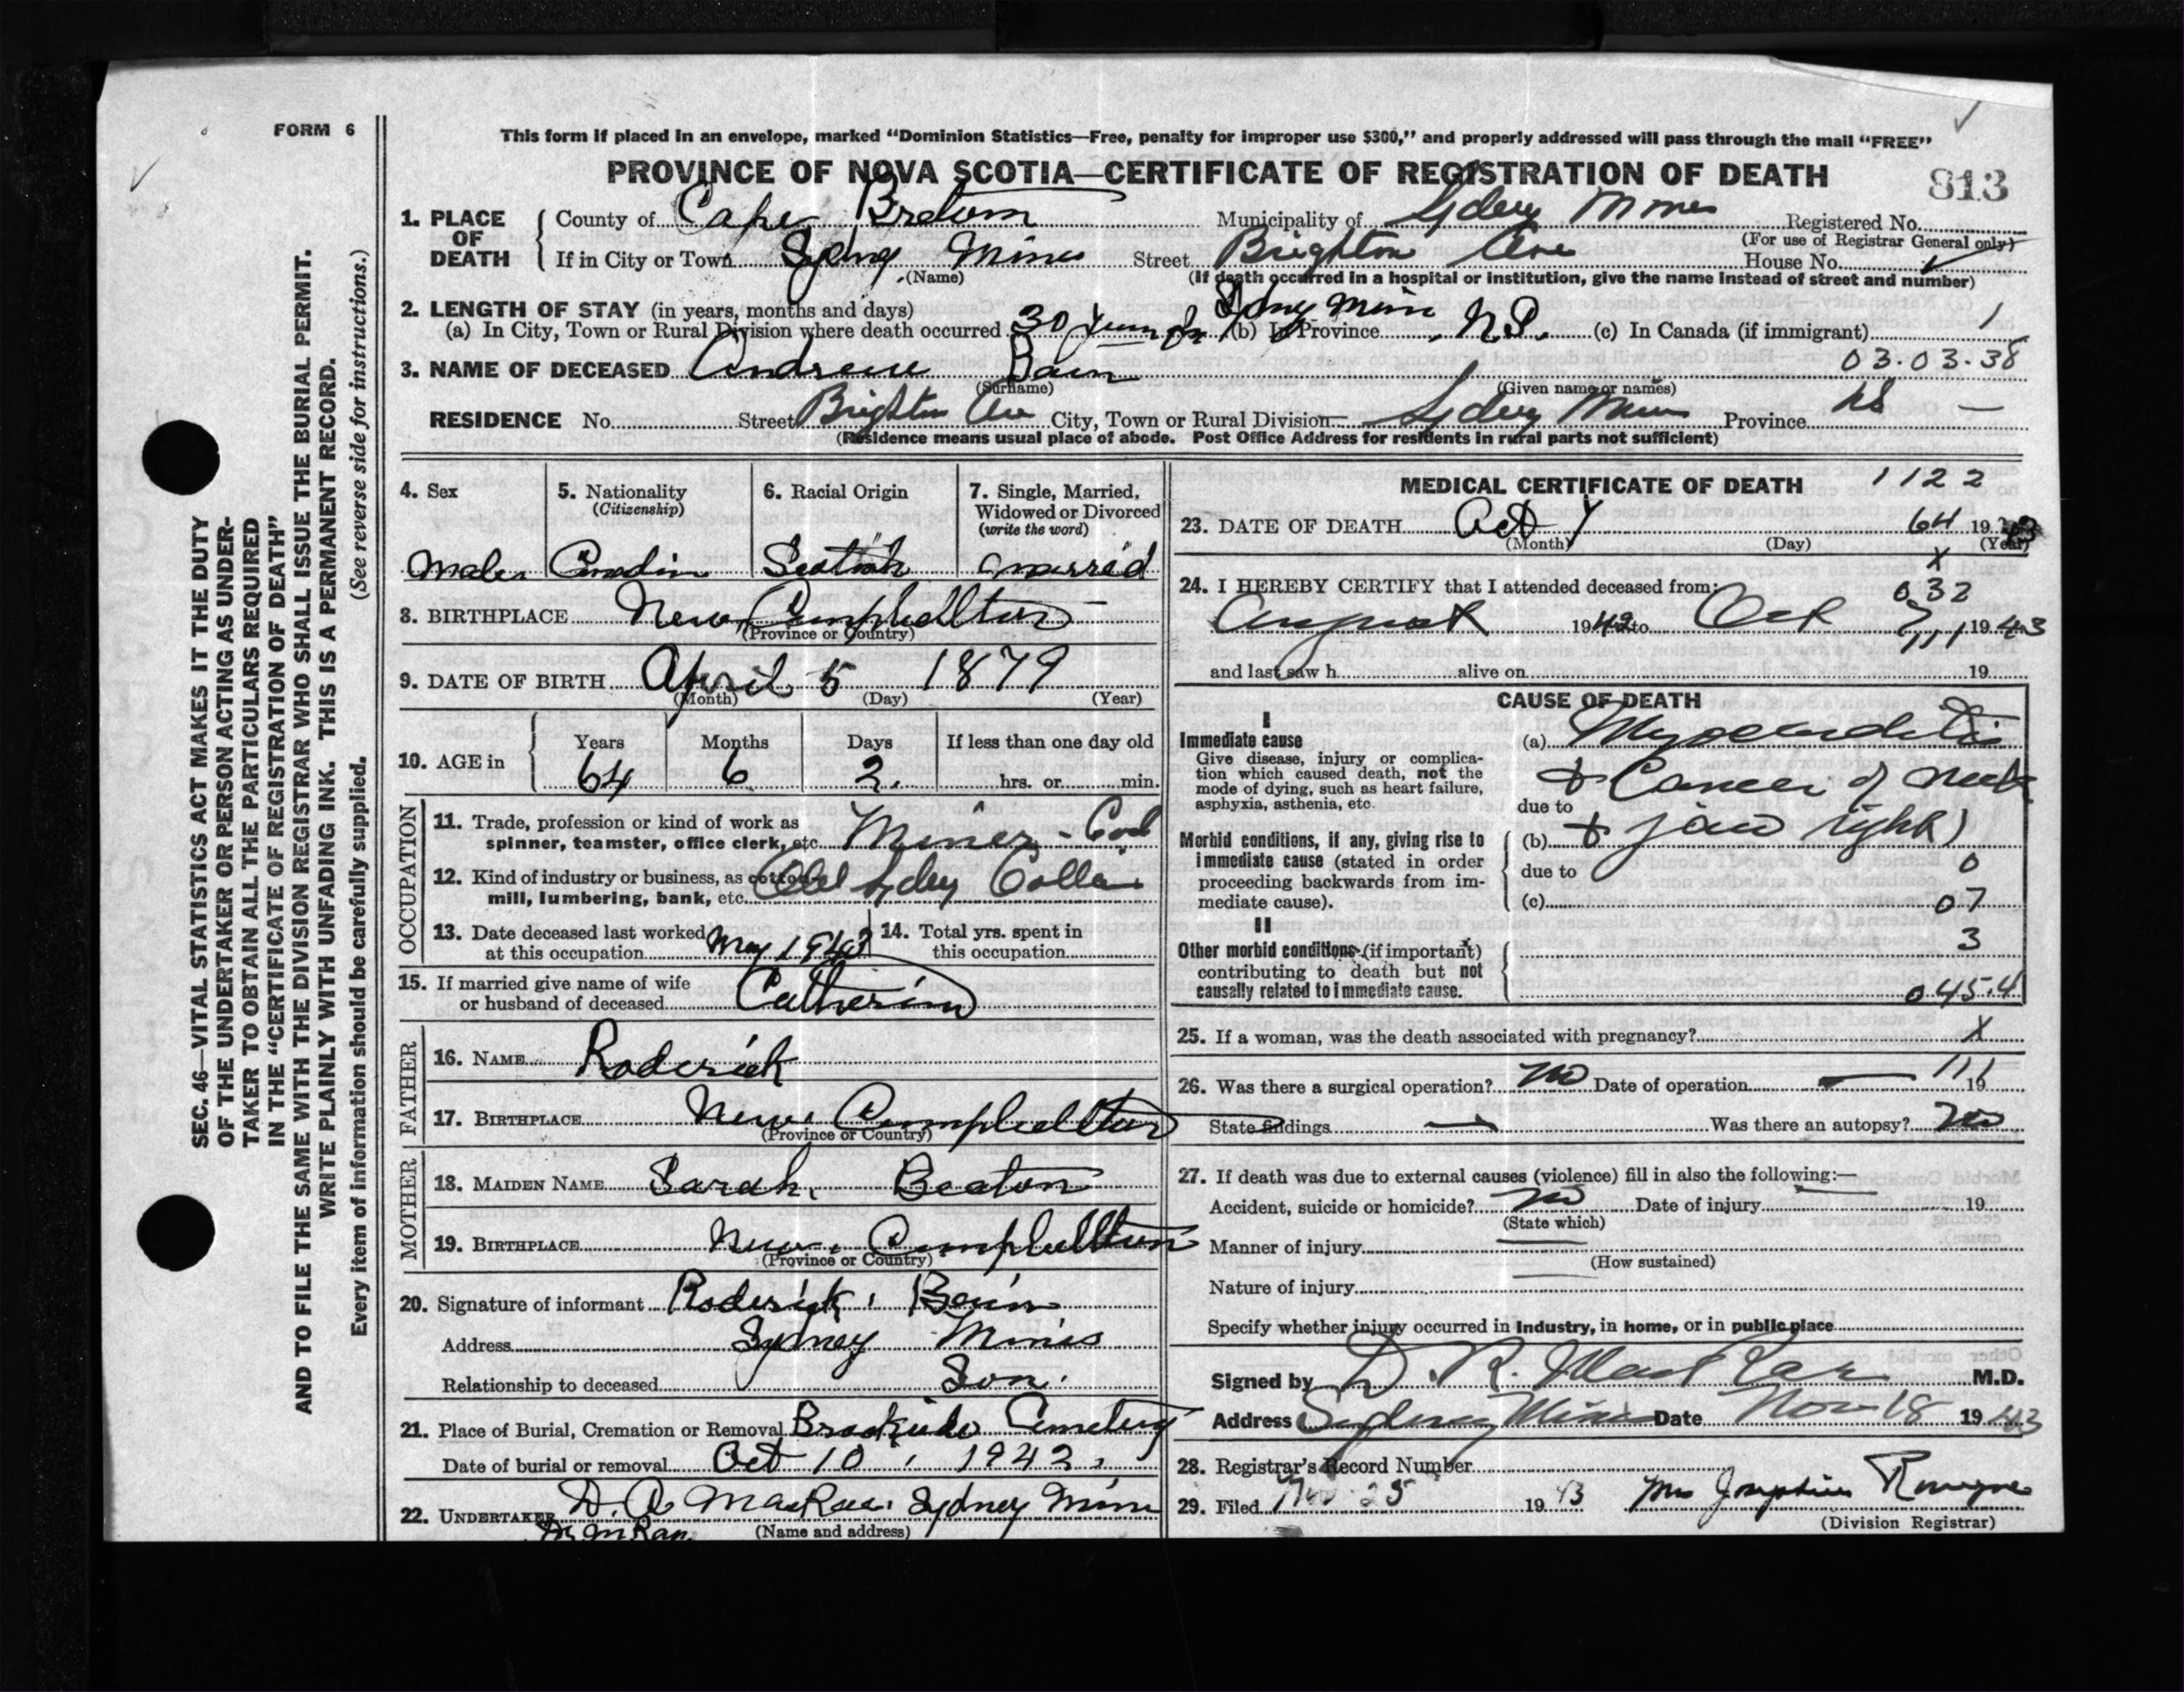 FORM 6
This form if placed in an envelope, marked "Dominion Statistics—Free, penalty for improper use $300," and properly addressed will pass through the mail "FREE"
PROVINCE OF NOVA SCOTIA—CERTIFICATE OF REGISTRATION OF DEATH
813
1. PLACE OF DEATH
County of Cape Breton Municipality of Sydney Mines Registered No.
(For use of Registrar General only)
If in City or Town Sydney Mines Street Brighton Ave House No.
(Name) (If death occurred in a hospital or institution, give the name instead of street and number)
2. LENGTH OF STAY (in years, months and days)
(a) In City, Town or Rural Division where death occurred 30 Sydney Mines (b) In Province N.S. (c) In Canada (if immigrant) 1
3. NAME OF DECEASED Andrew Bain 03.03.38
(Surname) (Given name or names)
RESIDENCE No. Street Brighton Ave City, Town or Rural Division Sydney Mines Province NS —
(Residence means usual place of abode. Post Office Address for residents in rural parts not sufficient)
4. Sex
Male
5. Nationality
(Citizenship)
Canadian
6. Racial Origin
Scotish
7. Single, Married,
Widowed or Divorced
(write the word)
married
8. BIRTHPLACE New Campbellton
(Province or Country)
9. DATE OF BIRTH April 5 1879
(Month) (Day) (Year)
10. AGE in Years Months Days If less than one day old
64 6 2 hrs. or min.
OCCUPATION
11. Trade, profession or kind of work as
spinner, teamster, office clerk, etc. Miner - Coal
12. Kind of industry or business, as cotton
mill, lumbering, bank, etc. Old Sydney
13. Date deceased last worked
at this occupation May 1943
14. Total yrs. spent in
this occupation
15. If married give name of wife
or husband of deceased Catherine
FATHER
16. NAME Roderick
17. BIRTHPLACE New Campbellton
(Province or Country)
MOTHER
18. MAIDEN NAME Sarah Beaton
19. BIRTHPLACE New Campbellton
(Province or Country)
20. Signature of informant Roderick Bain
Address Sydney Mines
Relationship to deceased Son.
21. Place of Burial, Cremation or Removal Brookside Cemetery
Date of burial or removal Oct 10, 1943
22. UNDERTAKER D. A. MacRae. Sydney Mines
(Name and address)
MEDICAL CERTIFICATE OF DEATH 1122
23. DATE OF DEATH Oct 7 64 19
(Month) (Day) (Year)
X
24. I HEREBY CERTIFY that I attended deceased from: 032
August 1942 to Oct 7 1943
111
and last saw h alive on 19
CAUSE OF DEATH
I
Immediate cause
Give disease, injury or complica-
tion which caused death, not the
mode of dying, such as heart failure,
asphyxia, asthenia, etc.
(a) Myocarditis
due to + Cancer of neck
Morbid conditions, if any, giving rise to
immediate cause (stated in order
proceeding backwards from im-
mediate cause).
(b) + jaw right)
due to 0
(c) 07
II
Other morbid conditions (if important)
contributing to death but not
causally related to immediate cause.
3
045.4
25. If a woman, was the death associated with pregnancy? X
26. Was there a surgical operation? no Date of operation — 111 19
State findings — Was there an autopsy? no
27. If death was due to external causes (violence) fill in also the following:—
Accident, suicide or homicide? no Date of injury — 19
(State which)
Manner of injury
(How sustained)
Nature of injury
Specify whether injury occurred in industry, in home, or in public place
Signed by D. R. MacRae M.D.
Address Sydney Mines Date Nov 18 1943
28. Registrar's Record Number
29. Filed Nov 25 1943 Mrs Josephine
(Division Registrar)
SEC. 46—VITAL STATISTICS ACT MAKES IT THE DUTY
OF THE UNDERTAKER OR PERSON ACTING AS UNDER-
TAKER TO OBTAIN ALL THE PARTICULARS REQUIRED
IN THE "CERTIFICATE OF REGISTRATION OF DEATH"
AND TO FILE THE SAME WITH THE DIVISION REGISTRAR WHO SHALL ISSUE THE BURIAL PERMIT.
WRITE PLAINLY WITH UNFADING INK. THIS IS A PERMANENT RECORD.
Every item of information should be carefully supplied. (See reverse side for instructions.)